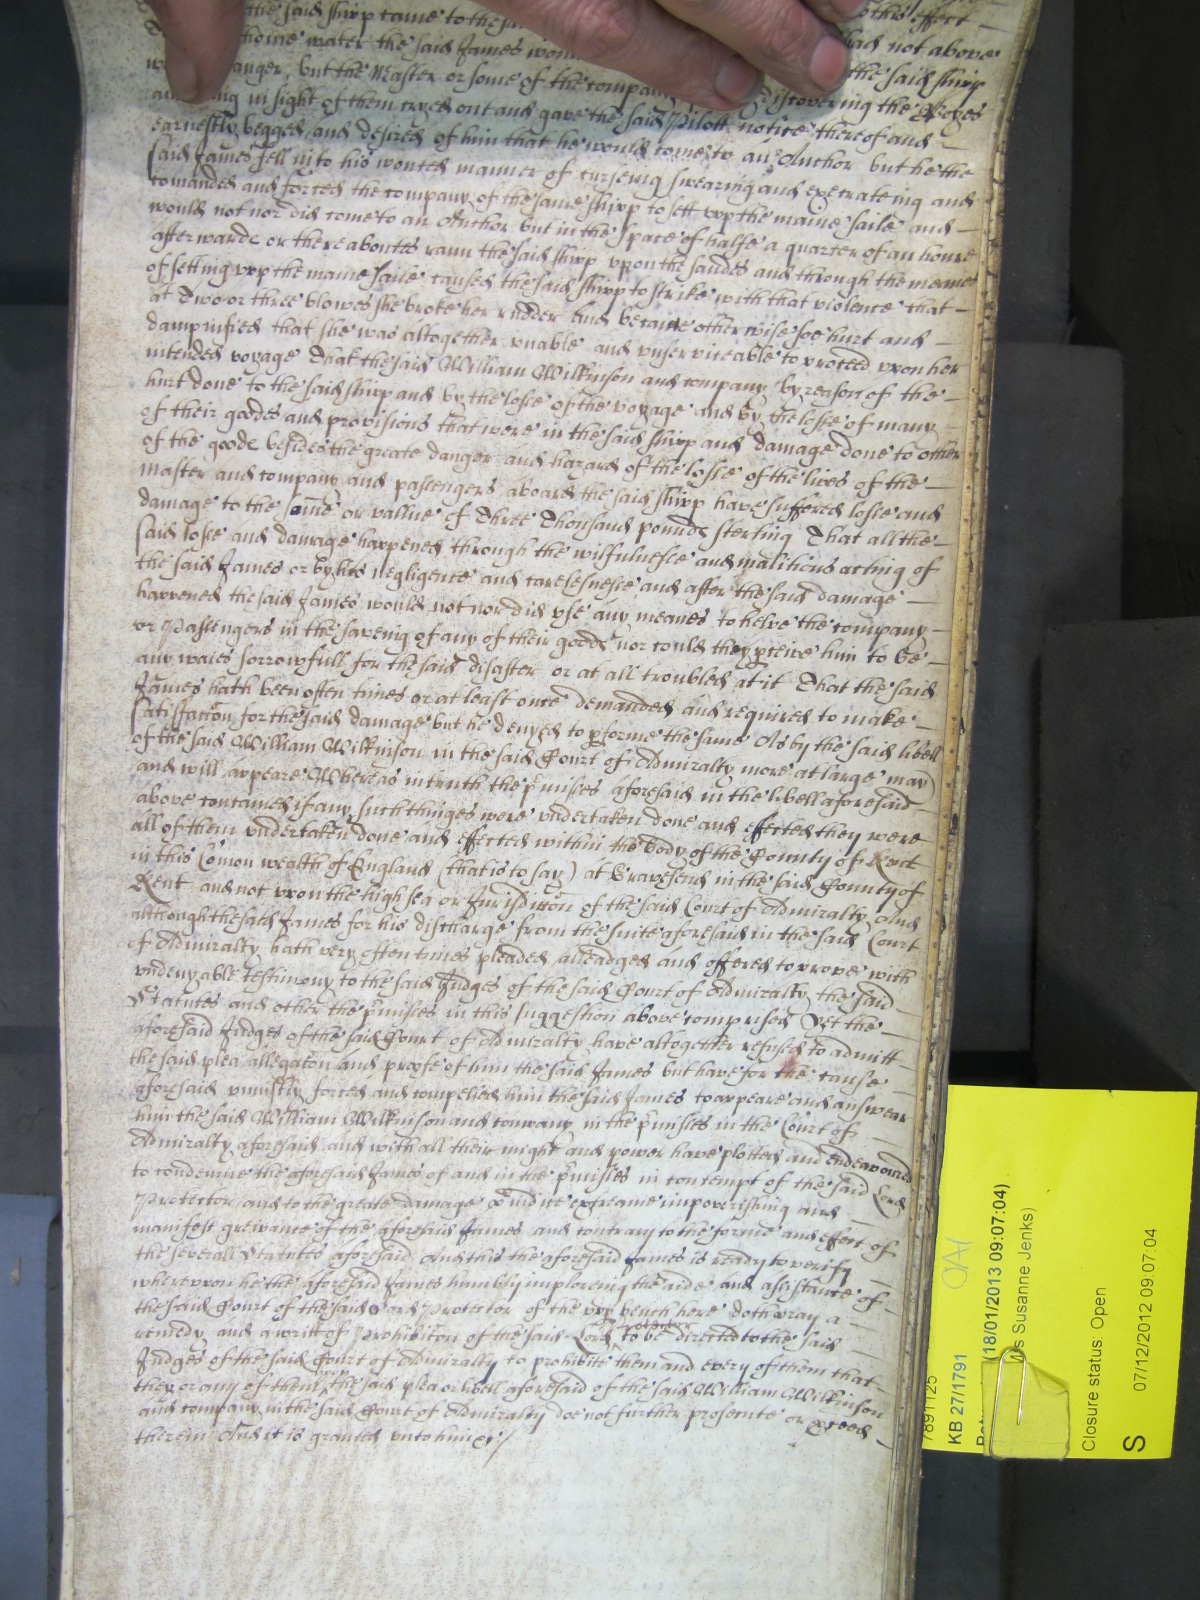 the said shipp came to the
tionie water the said James
had not above
anger, but the Master or some of the compan
the said shipp
ing in sight of them cryed out and gave the said Pilott notice thereof and
discovering the
earnestly begged and desired of him that he would come to an Anchor but he the
said James fell into his wonted manner of curseing swearing and execrateing and
comanded and forced the company of the same shipp to sett upp the maine saile and
would not nor did come to an Anchor but in the space of halfe a quarter of an houre
afterwards or thereaboutes rann the said shipp upon the sandes and through the meanes
of setting upp the maine saile caused the said shipp to strike with that violence that
at two or three blowes she broke her rudder and became otherwise soe hurt and
dampnified that she was altogether unable and unserviceable to proceed upon her
intended voyage That the said William Wilkinson and company by reason of the
hurt done to the said shipp and by the losse of the voyage and by the losse of many
of their goodes and provisions that were in the said shipp and damage done to other
of the goods besides the greate danger and hazard of the losse of the lives of the
master and company and passengers aboard the said shipp have suffered losse and
damage to the some or vallue of Three Thousand pounds sterling That all the
said losse and damage happened through the wilfulnesse and malitious acting of
the said James or by his negligence and carelesnesse and after the said damage
happened the said James would not nor did use any meanes to helpe the company
or Passengers in the saveing of any of their goods nor could they pceive him to be
any waies sorrowfull for the said disaster or at all troubled at it That the said
James hath been often times or at least once demanded and required to make
satisfaccon for the said damage but he denyed to pforme the same As by the said libell
of the said William Wilkinson in the said Court of Admiralty more at large may
and will appeare Whereas in truth the pmisses aforesaid in the libell aforesaid
above contained if any such thinges were undertaken done and effected they were
all of them undertaken done and effected within the body of the County of Kent
in this Comon wealth of England (that is to say) at Gravesend in the said County of
Kent and not upon the high sea or Jurisdiccon of the said Court of Admiralty And
although the said James for his discharge from the suite aforesaid in the said Court
of Admiralty hath very often times pleaded alleadged and offered to prove with
undenyable testimony to the said Judges of the said Court of Admiralty the said
Statutes and other the pmisses in this suggestion above comprised Yet the
aforesaid Judges of the said Court of Admiralty have altogether refused to admitt
the said plea allegacon and proofe of him the said James but have for the cause
aforesaid unjustly forced and compelled him the said James to appeare and answear
him the said William Wilkinson and company in the pmisses in the Court of
Admiralty aforesaid and with all their might and power have plotted and endeavoured
to condemne the aforesaid James of and in the pmisses in contempt of the said Lord
Protector and to the greate damage extreame impoverishing and
manifest greivance of the aforesaid James and contrary to the forme and effect of
the severall Statutes aforesaid And this the aforesaid James is ready to verify
whereupon he the aforesaid James humbly imploreing the aide and assistance of
the said Court of the said Lord Protector of the upp bench here doth pray a
remedy and a writt of Prohibicon of the said Lord Protector to be directed to the said
Judges of the said Court of Admiralty to prohibite them and every of them that
they or any of them the said plea or libell aforesaid of the said William Wilkinson
and company in the said Court of Admiralty doe not further prosecute or pceed
therein And it is granted unto him &c/
7891125
KB 27/1791
(18/01/2013 09:07:04)
Susanne Jenks)
Closure status: Open
S
07/12/2012 09:07:04